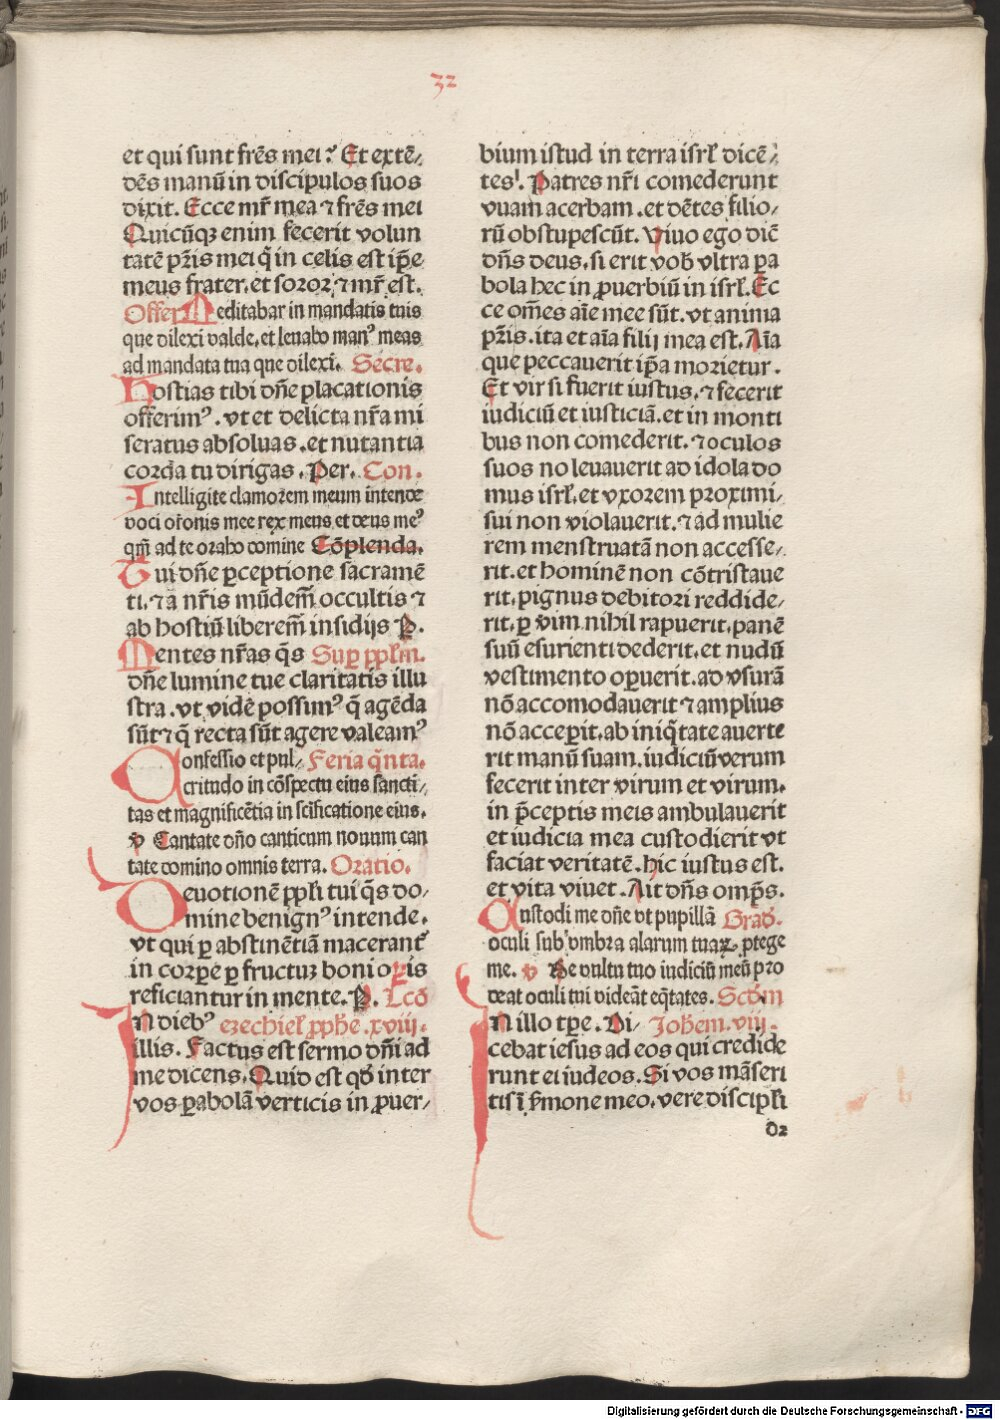 32
et qui sunt frēs mei? Et extē⸗
dēs manū in discipulos suos
dixit. Ecce mr̄ mea ⁊ frēs mei
Quicūqꝫ enim fecerit volun
tatē pr̄is mei q̄ in celis est ip̄e
meus frater. et soror ⁊ mr̄ est.
Offer Meditabar in mandatis tuis
que dilexi valde. et leuabo manꝰ meas
ad mandata tua que dilexi. Secre.
Hostias tibi dn̄e placationis
offerimꝰ. vt et delicta nr̄a mi
seratus absoluas. et nutantia
corda tu dirigas. Per. Con.
Intelligite clamorem meum intende
voci or̄onis mee rex meus et deus meꝰ
qm̄ ad te orabo domine Cōplenda.
Tui dn̄e ꝑceptione sacramē
ti. ⁊ a nr̄is mūdem̄ occultis ⁊
ab hostiū liberem̄ insidijs P.
Mentes nr̄as q̄s Suꝑ ppl̄m.
dn̄e lumine tue claritatis illu
stra. vt videē possimꝰ q̄ agēda
sūt ⁊ q̄ recta sūt agere valeamꝰ
Confessio et pul⸗ Feria q̄nta.
critudo in cōspectu eius sancti⸗
tas et magnificētia in scīficatione eius.
v Cantate dn̄o canticum nouum can
tate domino omnis terra. Oratio.
Deuotionē ppl̄i tui q̄s do⸗
mine benignꝰ intende.
vt qui ꝑ abstinētiā macerant̄
in corꝑe ꝑ fructuꝫ boni oꝑis
reficiantur in mente. P. Lc̄o
In diebꝰ ezechiel̄ ꝓph̄e. xviij.
illis. Factus est sermo dn̄i ad
me dicens. Quid est qđ inter
vos ꝑabolā verticis in ꝓuer⸗
bium istud in terra isrl̄ dicē⸗
tes. Patres nr̄i comederunt
vuam acerbam. et dētes filio⸗
rū obstupescūt. Viuo ego dic̄
dn̄s deus. si erit vob̄ vltra ꝑa
bola hec in ꝓuerbiū in isrl̄. Ec
ce om̄es aīe mee sūt. vt anima
pr̄is. ita et aīa filij mea est. Aīa
que peccauerit ip̄a morietur.
Et vir si fuerit iustus. ⁊ fecerit
iudiciū et iusticiā. et in monti
bus non comederit. ⁊ oculos
suos no leuauerit ad idola do
mus isrl̄. et vxorem proximi⸗
sui non violauerit. ⁊ ad mulie
rem menstruatā non accesse⸗
rit. et hominē non cōtristaue
rit. pignus debitori reddide⸗
rit. ꝑ vim nihil rapuerit. panē
suū esurienti dederit. et nudū
vestimento oꝑuerit. ad vsurā
nō accomodauerit ⁊ amplius
nō acceꝑit. ab iniq̄tate auerte
rit manū suam. iudiciū verum
fecerit inter virum et virum.
in p̄ceptis meis ambulauerit
et iudicia mea custodierit vt
faciat veritatē. hic iustus est.
et vita viuet. Ait dn̄s omp̄s.
Custodi me dn̄e vt pupillā Grad̄.
oculi sub vmbra alarum tuaꝝ ꝓtege
me. v De vultu tuo iudiciū meū pro
deat oculi tui videāt eq̄tates. Scd̄m
In illo tp̄e. Di⸗ Joh̄em. viij.
cebat iesus ad eos qui credide
runt ei iudeos. Si vos māseri
tis ī s̄mone meo. vere discipl̄i
d2
Digitalisierung gefördert durch die Deutsche Forschungsgemeinschaft - DFG